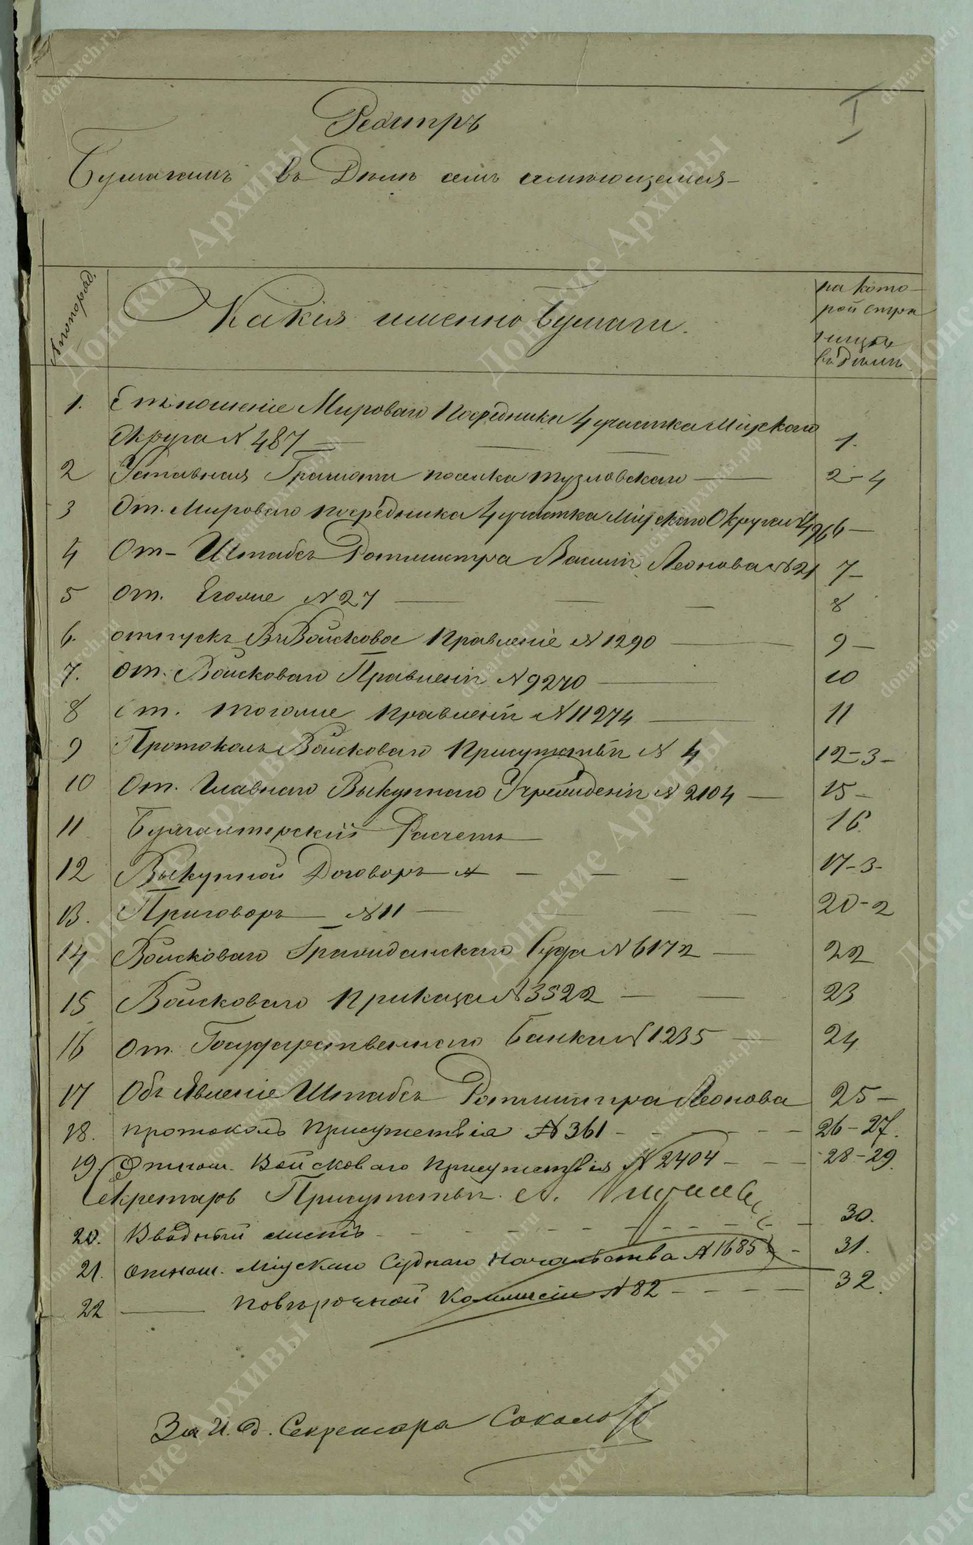 Реэстръ
I
Бумагамъ въ Дѣлѣ семъ имѣющемся
№ попоряд.
Какія именно Бумаги.
на кото-
рой стра
ницѣ
въ Дѣлѣ
1. Отношеніе Мироваго Посредника 4 участка Міускаго
Округа № 487 1.
2 Уставная Грамота поселка Тузловскаго 2-4
3 От. Мироваго посредника 4 участка Міускаго Округа № 496 6
4 От- Штабсъ Ротмистра Леонова № 21 7-
5 От. Егоже № 27 8
6. отпускъ ВъВойсковое Правленіе № 1290 9-
7. От. Войсковаго Правленія № 9270 10
8 от. тогоже правленія № 11274 11
9 Протоколъ Войсковаго Присутствія № 4 12-3-
10 От. Главнаго Выкупнаго Учрежденія № 2104 15-
11 Бухгалтерскій Расчетъ 16.
12 Выкупной Договоръ № 17-3-
13. Приговоръ №11 20-2
14 Войсковаго Гражданскаго Суда № 6172 22
15 Войсковаго Приказа № 3522 23
16 От. Государственнаго Банка № 1235 24
17 Объявленіе Штабсъ Ротмистра Леонова 25-
18. протоколъ Присутствія № 361 26-27.
19 Отнош. Войсковаго Присутствія № 2404 28-29.
Секретарь Присутствія
20. Вводный листъ 30.
21. отнош. Міускаго Суднаго Начальства № 1685 31.
22 повѣрочной Коммисіи № 82 32.
За И. д. Секретаря Соколовъ
Донские Архивы
donarch.ru
донскиеархивы.рф